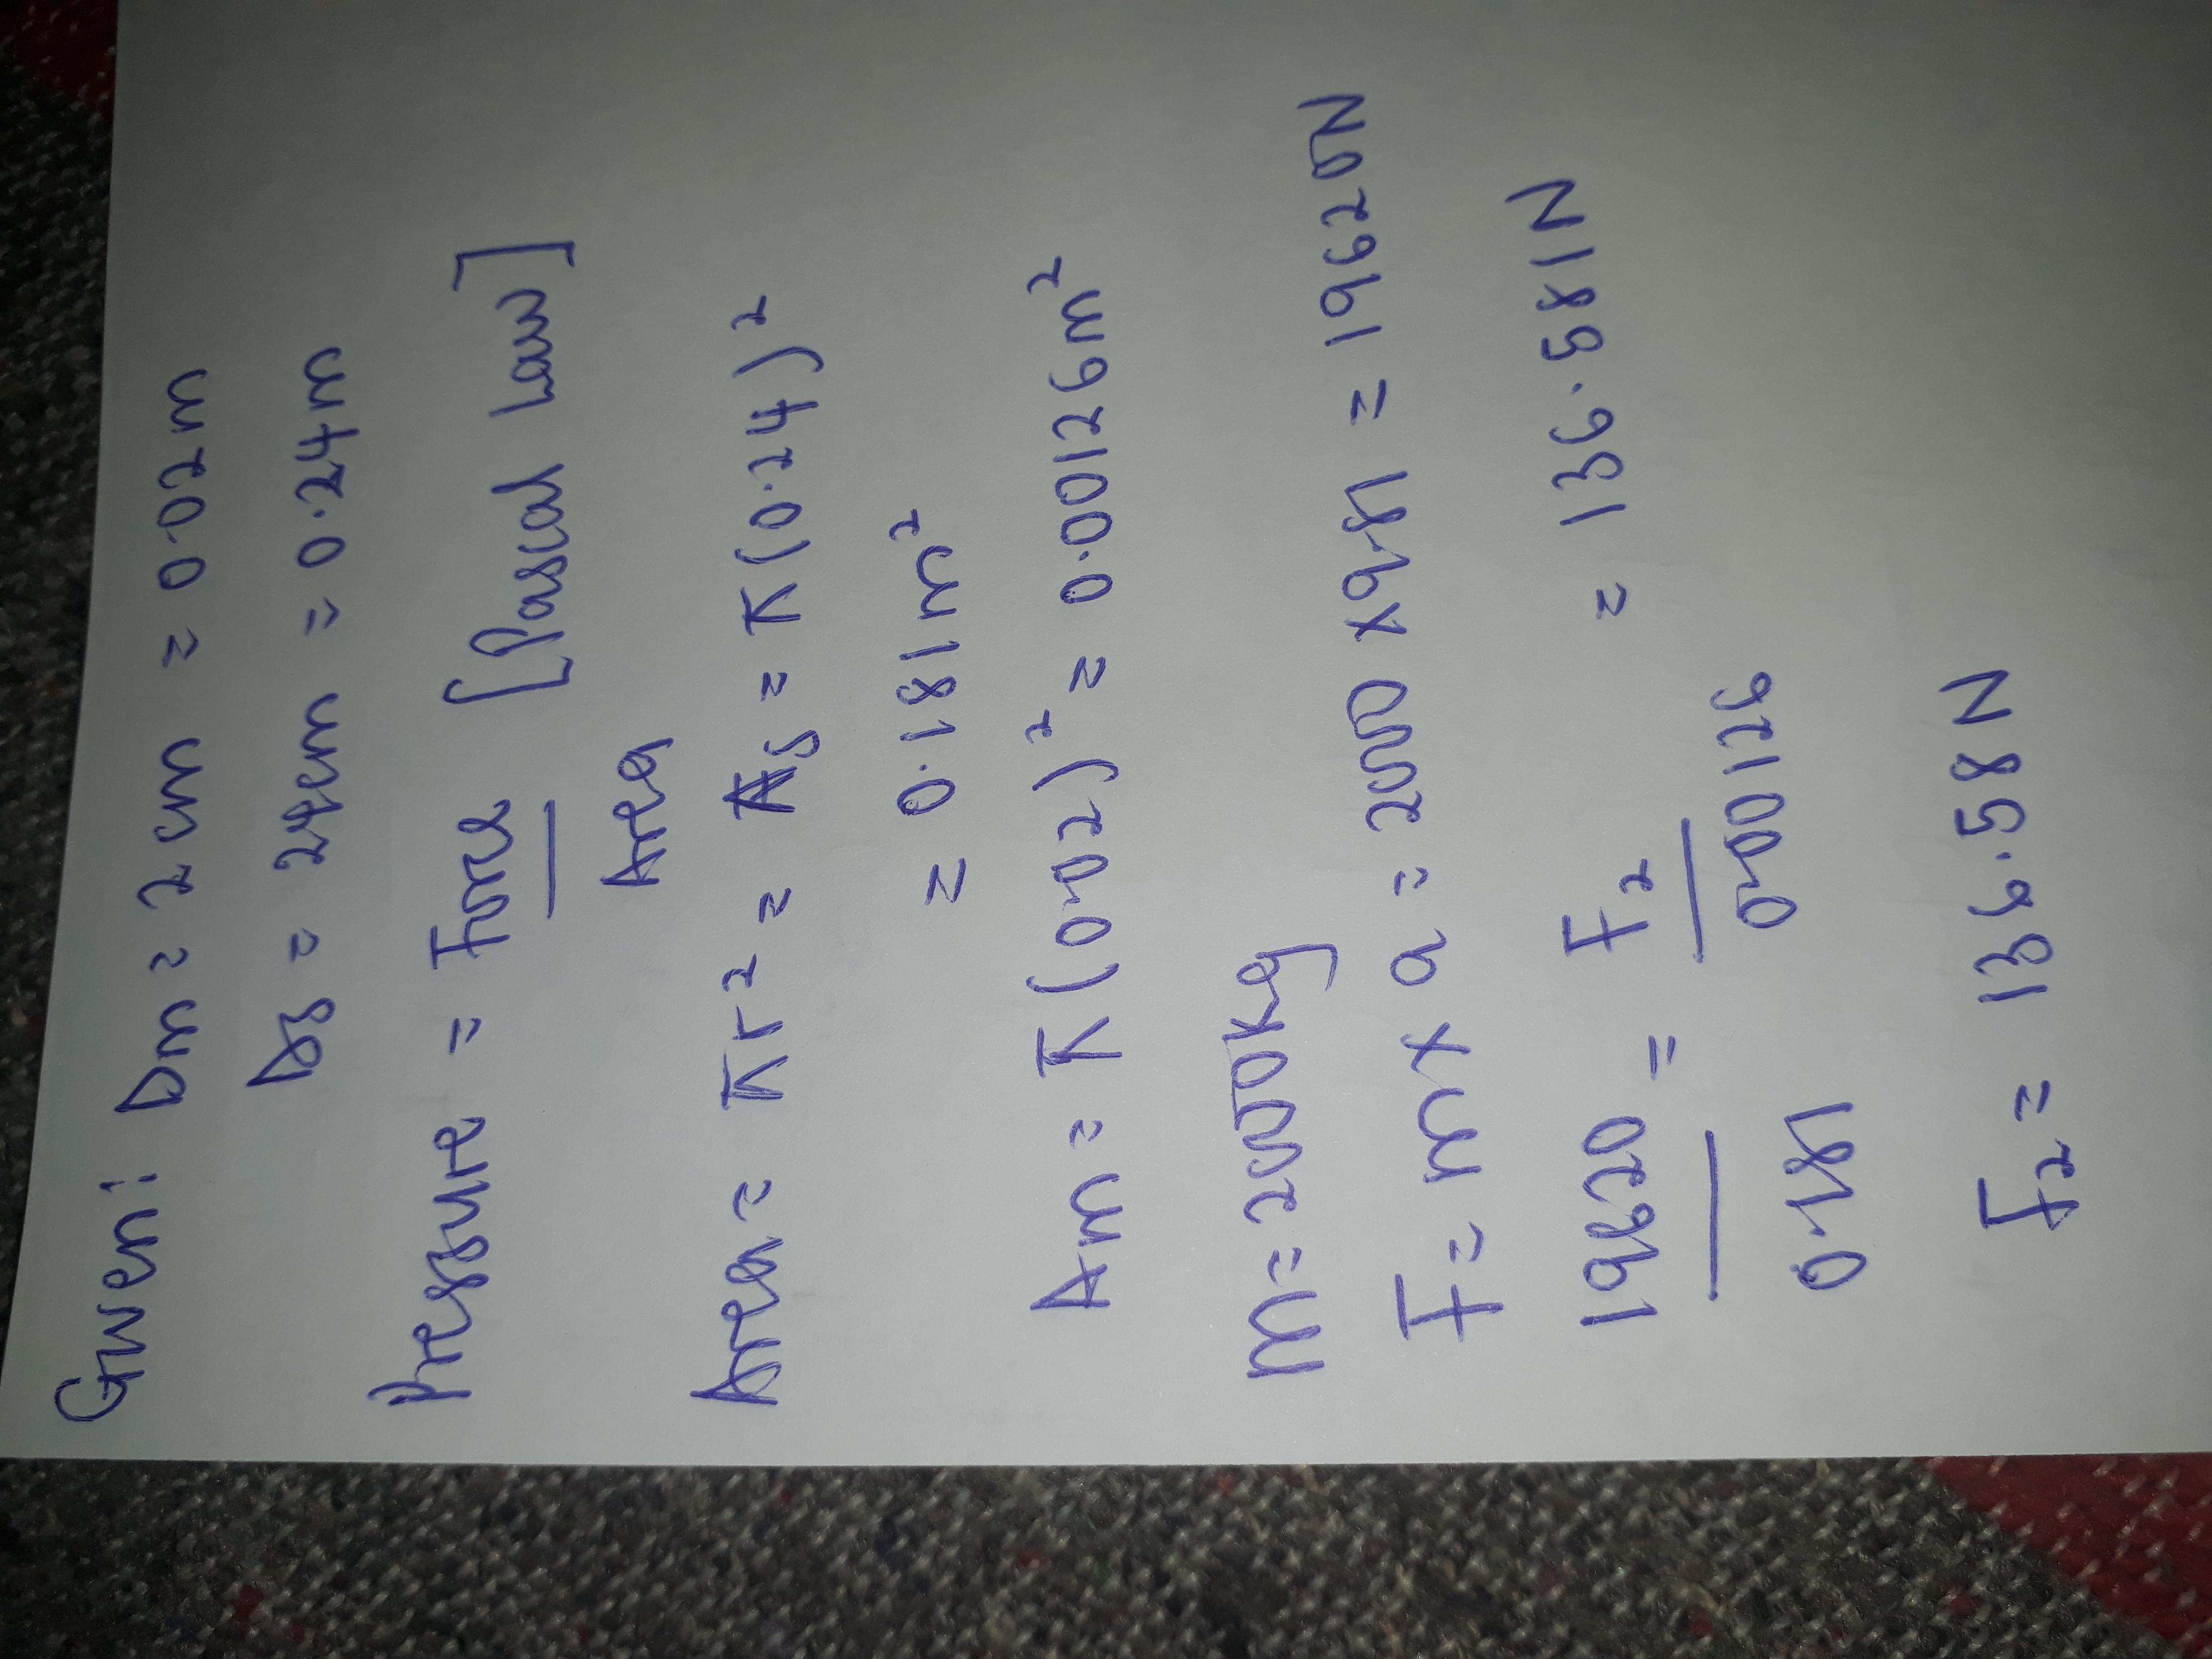 Given: Dm = 2cm = 0.02m
Ds = 24cm = 0.24m
Pressure = Force [Pascal Law]
Area
Area = πr² = As = π(0.24)²
= 0.181m²
Am = π(0.02)² = 0.00126m²
m = 2000kg
F = m x a = 2000 x 9.81 = 19620N
19620 = F₂ = 136.581N
0.181 0.00126
F₂ = 136.58N